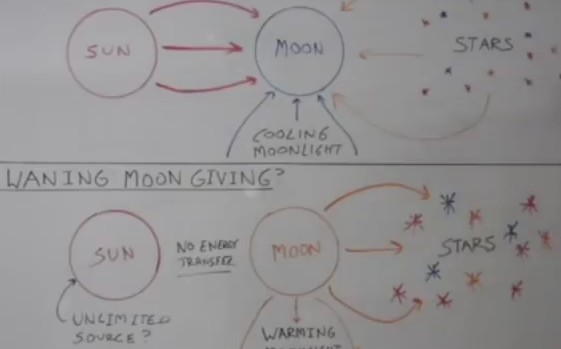 SUN
MOON
STARS
COOLING
MOONLIGHT
WANING MOON GIVING?
SUN
NO ENERGY
TRANSFER
MOON
STARS
UNLIMITED
SOURCE?
WARMING